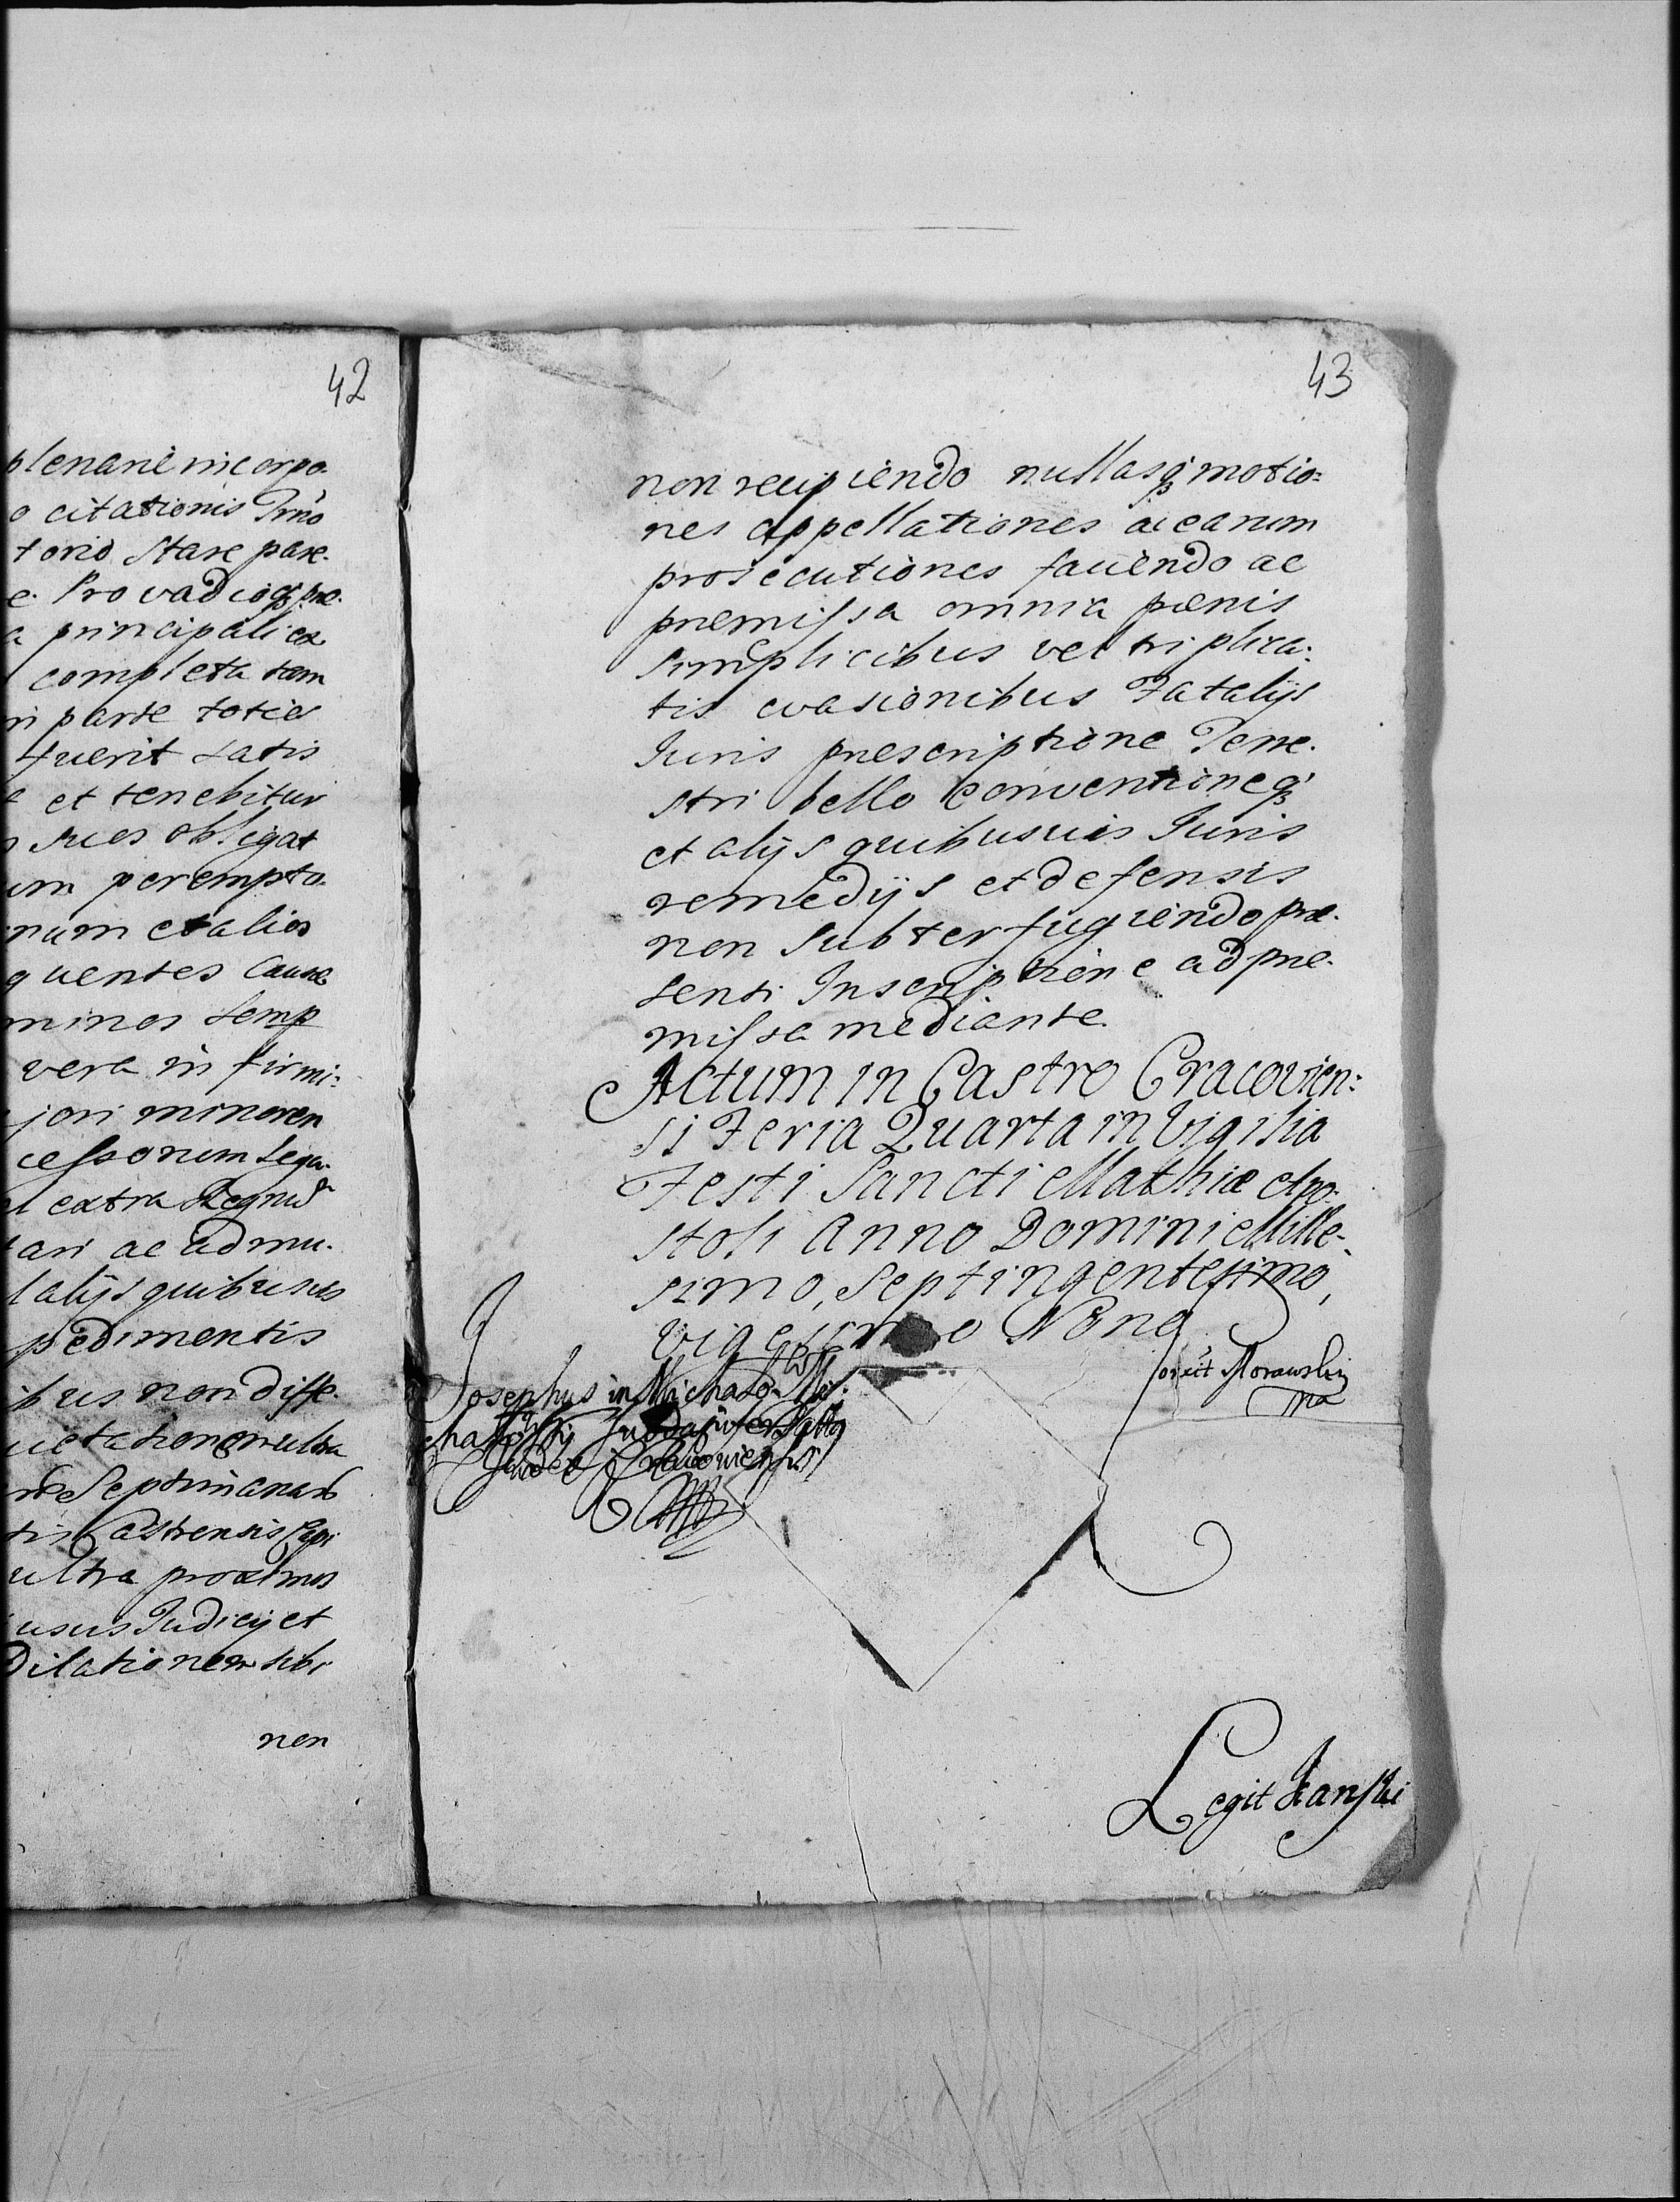 42
plenarie incorpo
o citationis Trno
torio Stare pare.
e. Pro vadioq; præ.
a principali ex
completa tam
in parte toties
fuerit satis
et tenebitur
sues obligat
um perempto.
num et alios
quentes Causæ
minos semp
vera in firmi:
jori minoren
cessorum Lega.
extra Regnu
ari ac admu.
alijs quibusvis
pedimentis
ibus non diffe.
ultra
Septimanas
tis Castrensis Capi
ultra proximos
usus Judicij et
Dilationem sibi
non
43
non recipiendo nullasq; motio:
nes appellationes ac earum
prosecutiones faciendo ac
premissa omnia pænis
simplicibus vel triplica:
tis evasionibus Fatalijs
Juris prescriptione Terre.
stri bello conventioneq;
et alijs quibusvis Juris
remedijs et defensis
non subterfugiendo præ.
senti Inscriptione ad pre.
missa mediante.
Actum in Castro Cracovien:
si Feria Quarta in Vigilia
Festi Sancti Mathiæ Apo.
stoli Anno Domini Mille-
simo, Septingentesimo,
Vigesimo Nono
Josephus in Michalo
Judex Cracoviensis
Morawskij
mp
Legit Kański